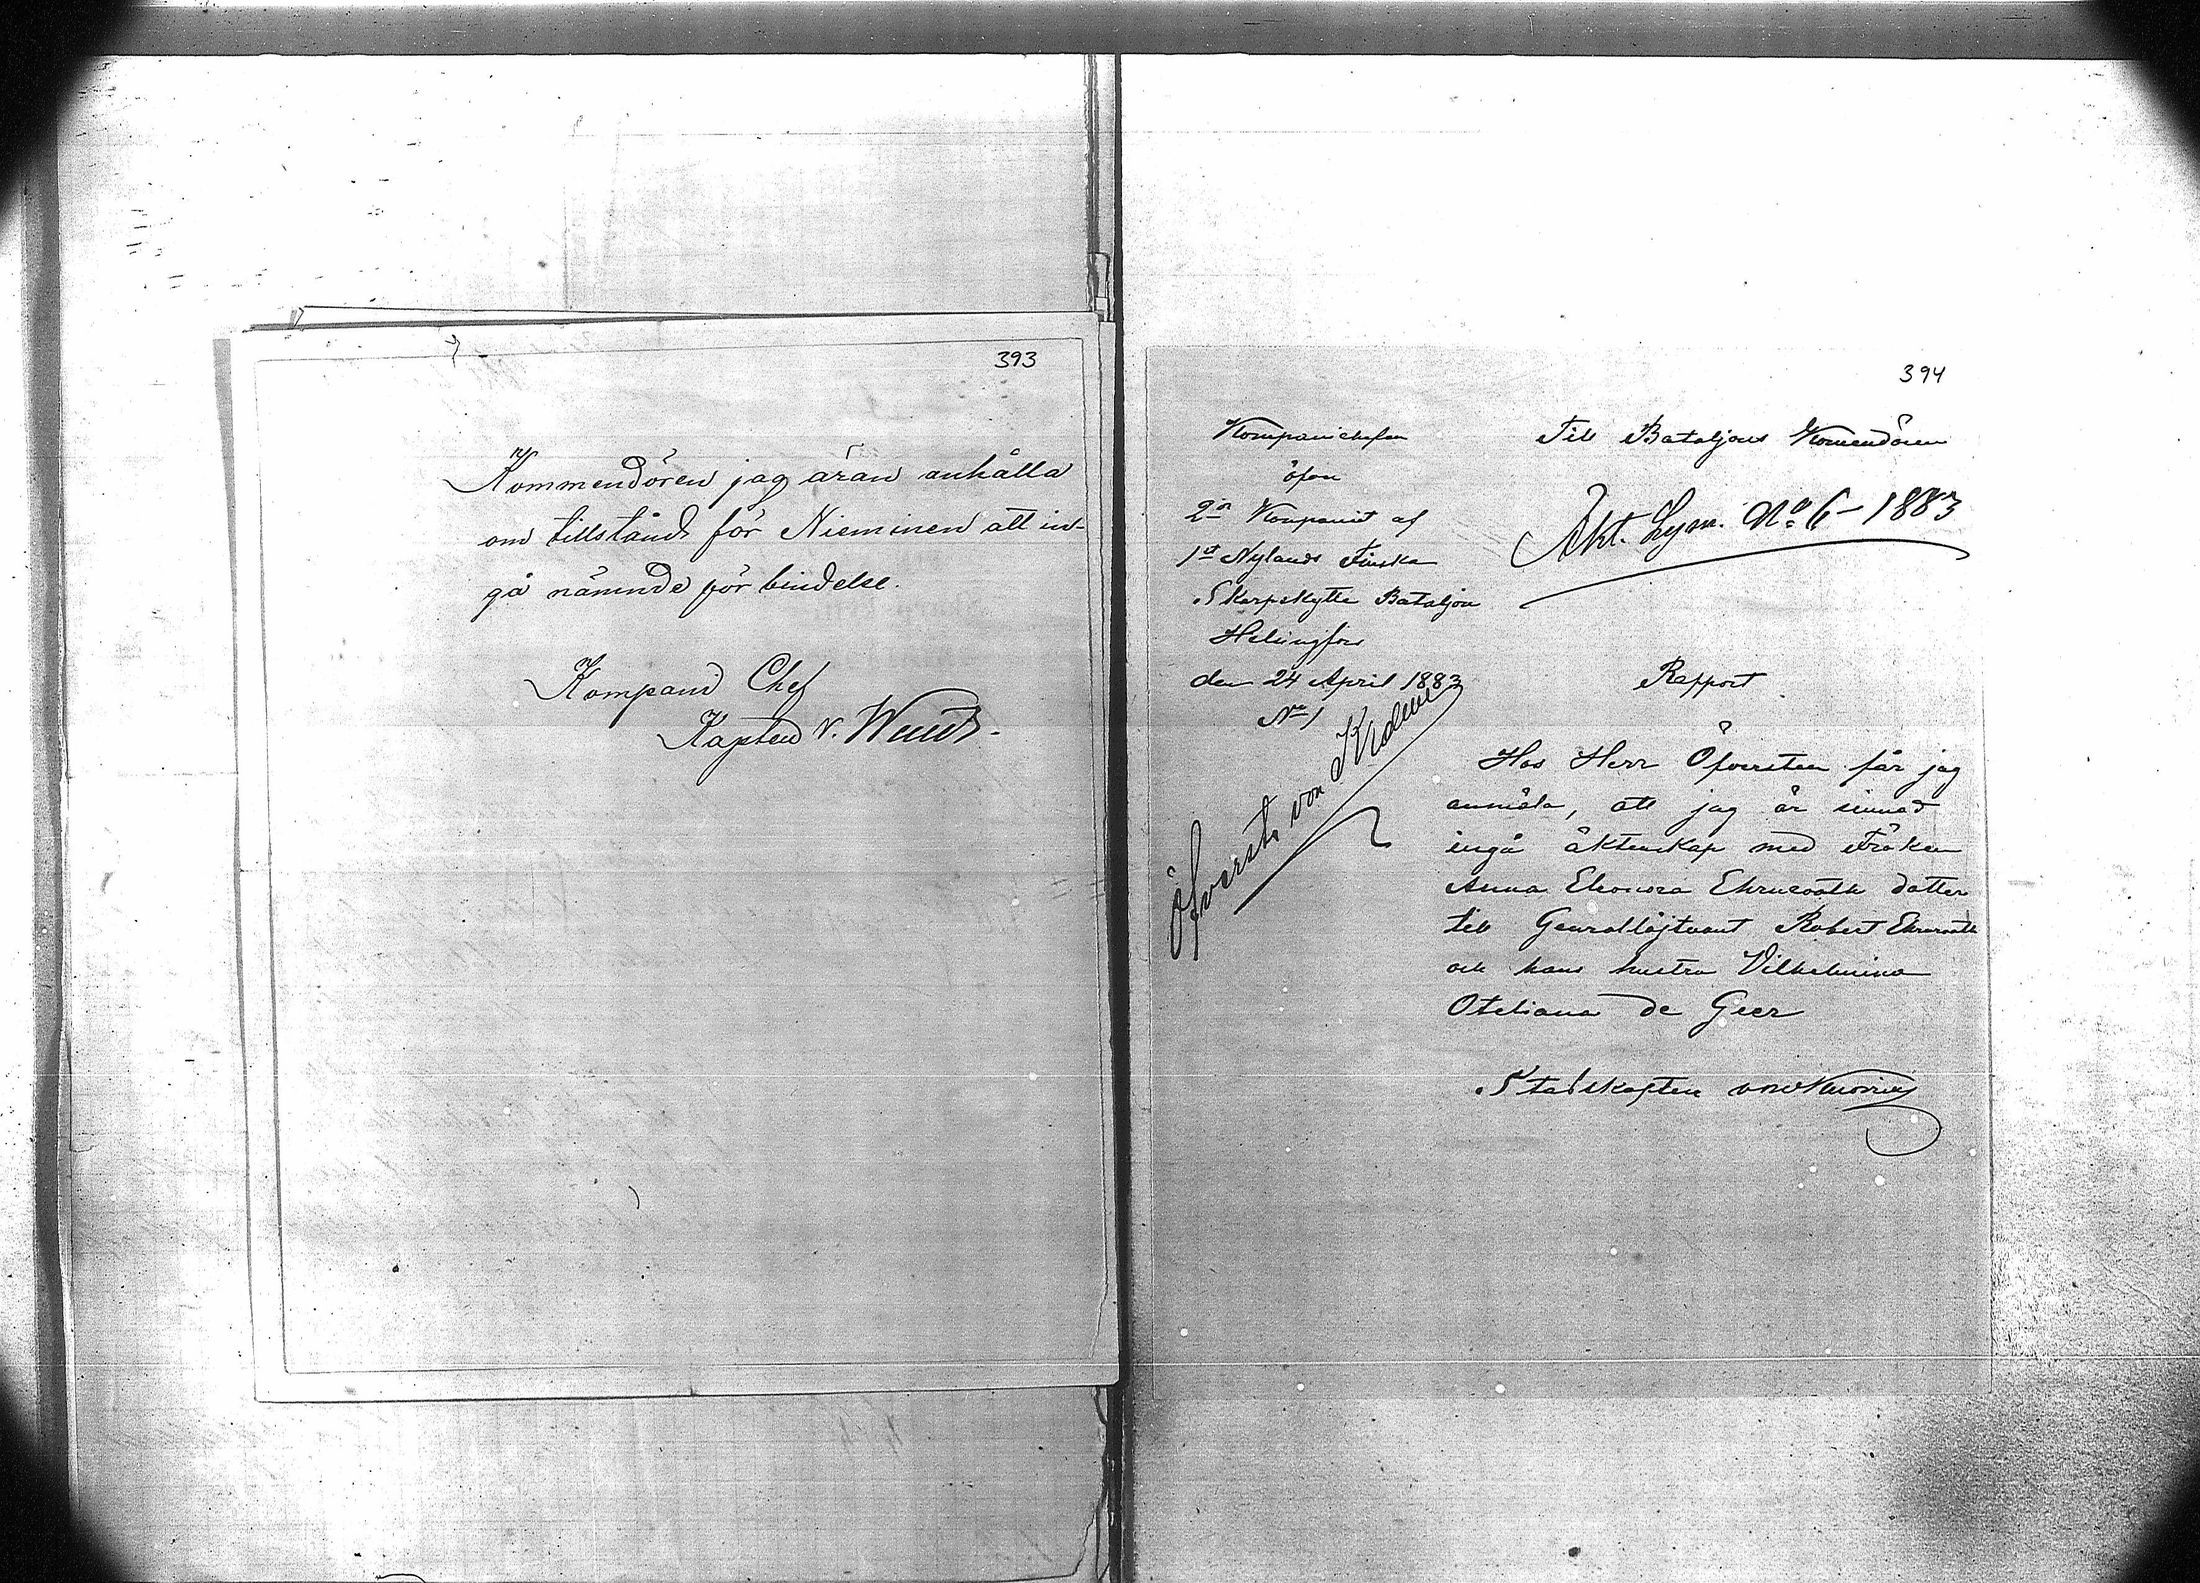 393
Kommendören jag äran anhålla
om tillstånd för Nieminen att in-
gå nämnde förbindelse.
Kompani Chef
Kapten v.
394
Kompanichefen
öfver
2dra Kompanit af
1sta Nylands Finska
Skarpskytte Bataljon
Helsingfors
den 24 April 1883
No 1
Öfverste von
Till Bataljons Komendören
Äkt. Lysn. No 6 - 1883
Rapport
Hos Herr Öfversten får jag
anmäla, att jag är sinnad
ingå äktenskap med Fröken
Anna Eleonora Ehrnrooth dotter
till Generallöjtnant Robert Ehrnrooth
och hans hustru Vilhelmina
Oteliana de Geer
Stabskapten von